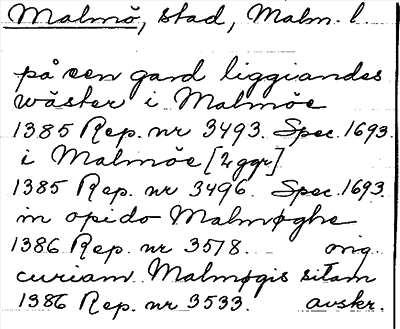 Malmö, stad, Malm. l.
på een gard liggiandes
wäster i Malmöe
1385 Rep. nr 3493. Spec. 1693.
i Malmöe [2 ggr]
1385 Rep. nr 3496. Spec. 1693.
in opido Malmøghe
1386 Rep. nr 3518. orig.
curiam Malmøgis sitam
1386 Rep. nr 3533. avskr.